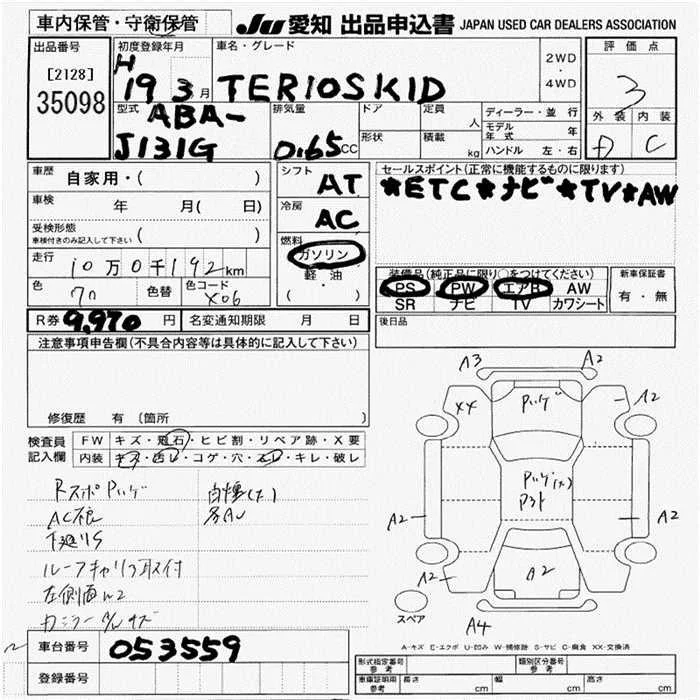 車内保管・守衛保管
JU 愛知 出品申込書 JAPAN USED CAR DEALERS ASSOCIATION
出品番号
[2128]
35098
初度登録年月
H 19 3月
車名・グレード
TERIOSKID
2WD
・
4WD
評価点
3
外装 内装
C
型式
ABA-
J131G
排気量
0.65 CC
ドア
定員 人
形状
積載 kg
ディーラー・並行
モデル年式 年
ハンドル 左・右
車歴 自家用・( )
車検 年 月( 日)
受検形態
車検付きのみ記入して下さい ( )
走行 10万0千192km
色
色替
色コード X06
シフト AT
冷房 AC
燃料
ガソリン
軽・油
( ・ )
セールスポイント(正常に機能するものに限ります)
*ETC*ナビ*TV*AW
装備品(純正品に限り○をつけてください)
PS PW エアB AW
SR ナビ TV カワシート
新車保証書
有・無
R券 9,970 円
名変通知期限 月 日
後日品
注意事項申告欄(不具合内容等は具体的に記入して下さい)
修復歴 有 〔箇所 〕
検査員
記入欄
FW キズ・飛石・ヒビ割・リペア跡・X要
内装 キズ・汚レ・コゲ・穴・スレ・キレ・破レ
ルーフキャリア取付
A3 A2
XX A2
A2 A2
A2 A2 A2
A4
スペア
A-キズ E-エクボ U-凹み W-補修跡 S-サビ C-腐食 XX-交換済
車台番号 053559
登録番号
形式指定番号
参考
類別区分番号
参考
車庫証明用
参考
長さ cm
幅 cm
高さ cm